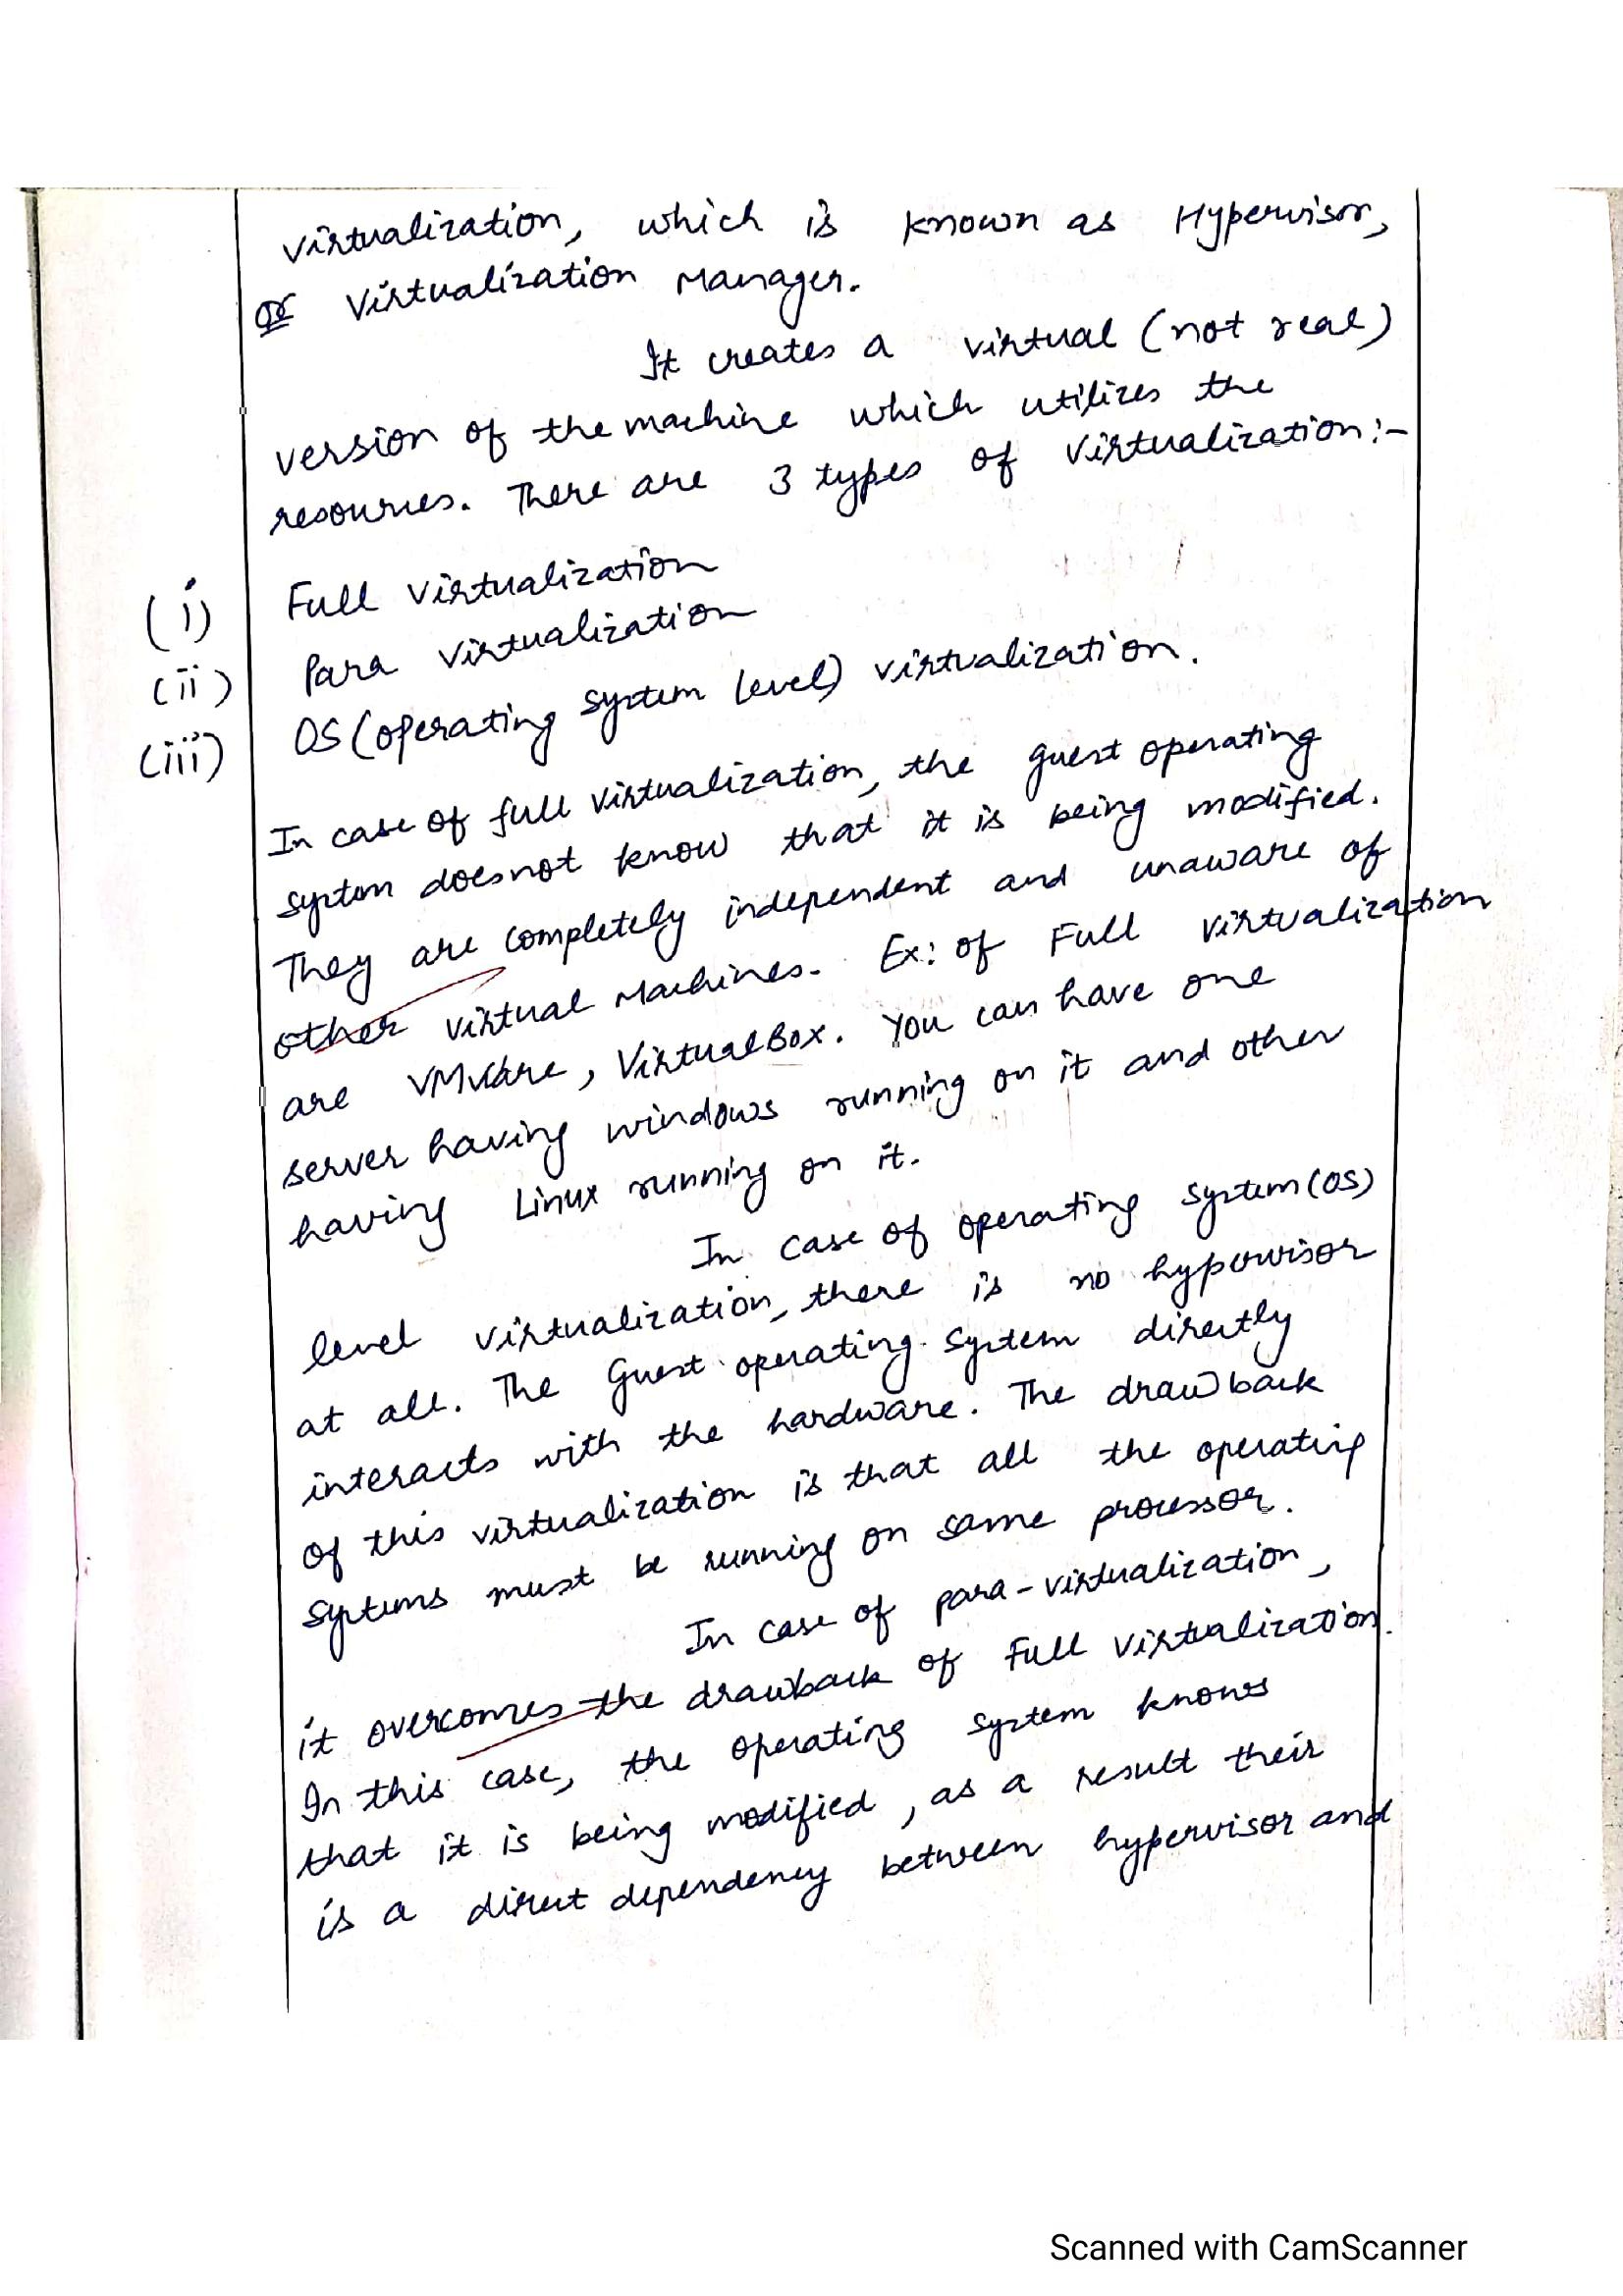 virtualization, which is known as Hypervisor,
or Virtualization Manager.
It creates a virtual (not real)
version of the machine which utilizes the
resources. There are 3 types of virtualization:-
(i) Full virtualization
(ii) Para virtualization
(iii) OS (operating system level) virtualization.
In case of full virtualization, the guest operating
system does not know that it is being modified.
They are completely independent and unaware of
other virtual Machines. Ex: of Full virtualization
are VMware, VirtualBox. You can have one
server having windows running on it and other
having Linux running on it.
In case of operating system (OS)
level virtualization, there is no hypervisor
at all. The Guest operating system directly
interacts with the hardware. The drawback
of this virtualization is that all the operating
systems must be running on same processor.
In case of para-virtualization,
it overcomes the drawback of Full virtualization.
In this case, the operating system knows
that it is being modified, as a result their
is a direct dependency between hypervisor and
Scanned with CamScanner